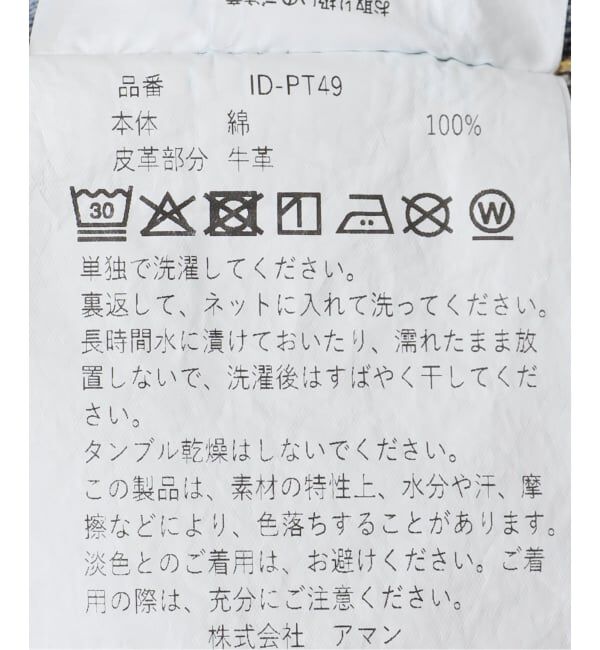 お取り扱いのご注意
品番 ID-PT49
本体 綿 100%
皮革部分 牛革
30 W
単独で洗濯してください。
裏返して、ネットに入れて洗ってください。
長時間水に漬けておいたり、濡れたまま放
置しないで、洗濯後はすばやく干してくだ
さい。
タンブル乾燥はしないでください。
この製品は、素材の特性上、水分や汗、摩
擦などにより、色落ちすることがあります。
淡色とのご着用は、お避けください。ご着
用の際は、充分にご注意ください。
株式会社 アマン